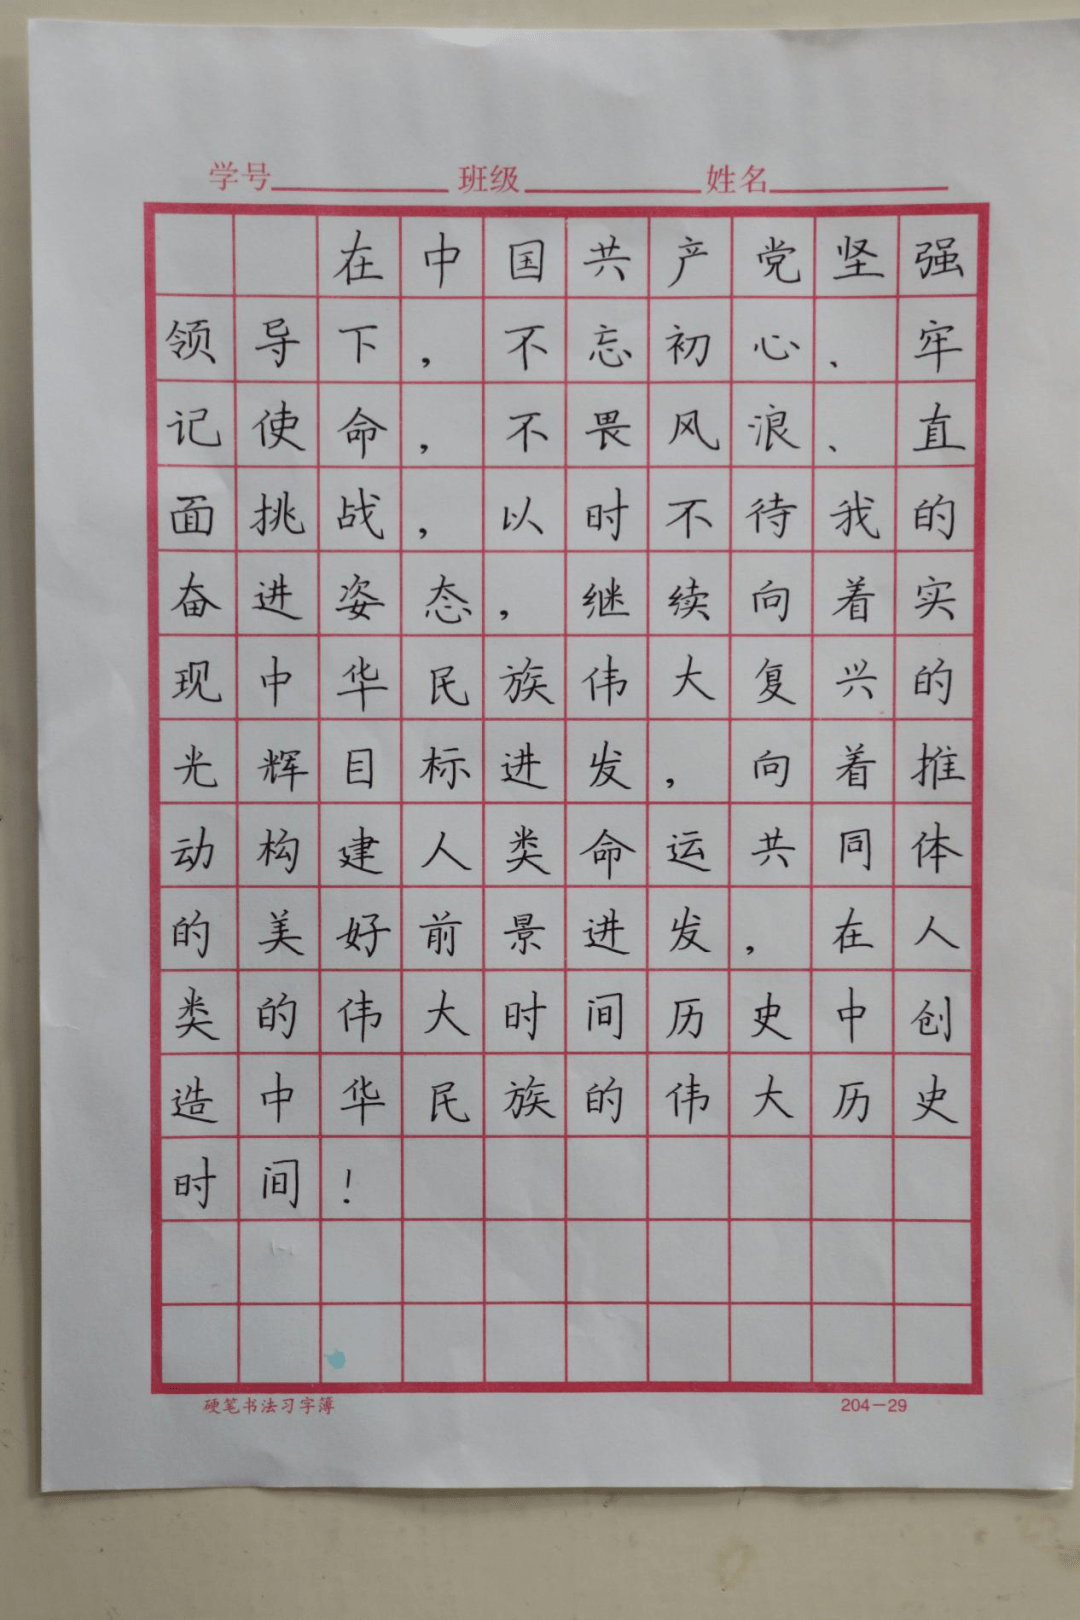 学号 班级 姓名
在中国共产党坚强
领导下，不忘初心、牢
记使命，不畏风浪、直
面挑战，以时不待我的
奋进姿态，继续向着实
现中华民族伟大复兴的
光辉目标进发，向着推
动构建人类命运共同体
的美好前景进发，在人
类的伟大时间历史中创
造中华民族的伟大历史
时间！
硬笔书法习字簿 204-29